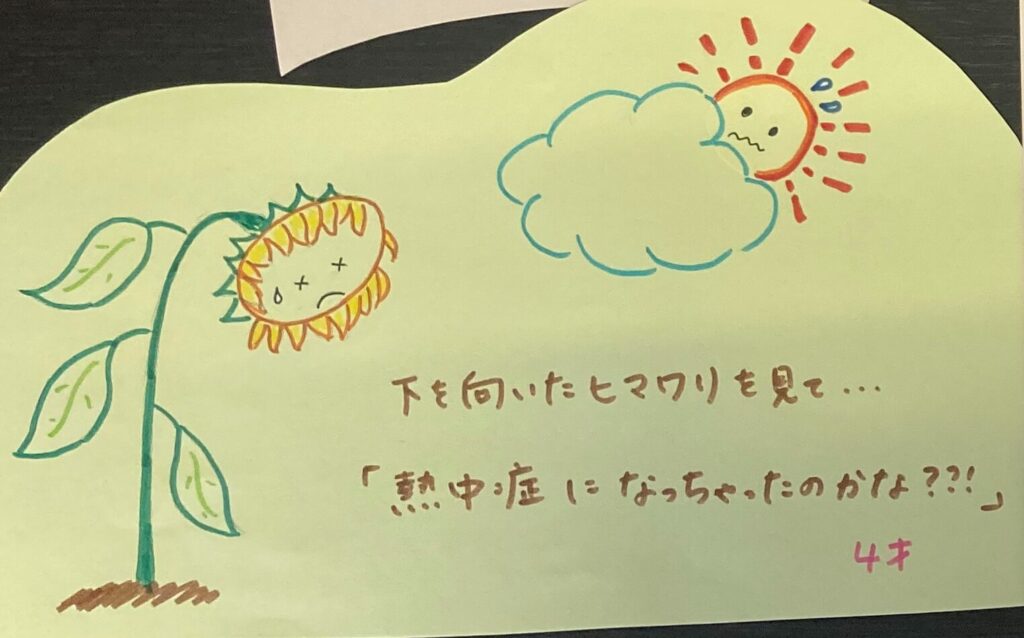 下を向いたヒマワリを見て...
「熱中症になっちゃったのかな??!」
4才